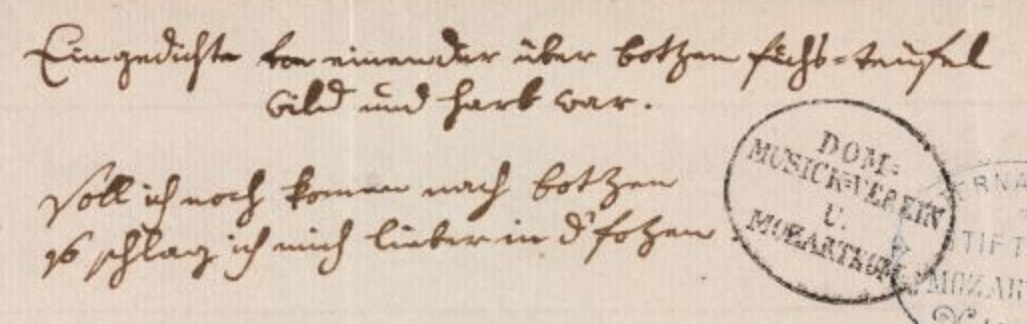 Ein gedichte von einen der über botzen fuchs=teüfel
wild und harb war.
soll ich noch komen nach botzen
so schlag ich mich lieber in d'fozen
DOM=
MUSICK=VEREIN
U.
MOZARTEUM
ERNA
STIFT
MOZAR